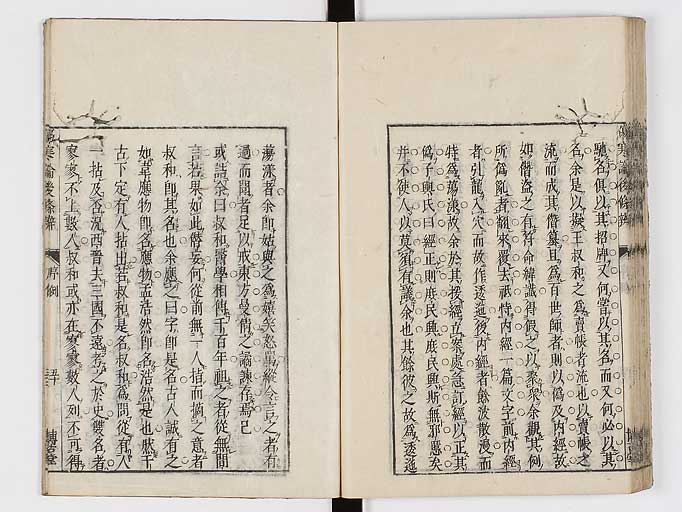 馳名俱以其招牌又何嘗以其名而又何必以其
名余是以擬王叔和之爲賣帳者流也以賣帳之
流而成其僭篡且爲百世師者則以僞及內經故
如僭盜之有符命緯讖得假之以聚衆余觀其例
所爲亂者翻來覆去祇恃內經一篇文字前內經
者引龍入穴而故作逶迤後內經者餘波散漫而
特爲蕩漾故余於其援經立案處急訂經以正其
僞子輿氏曰經正則庶民興庶民興斯無邪慝矣
并不使人以莫須有議余也其餘彼之故爲逶迤
蕩漾者余卽姑與之爲嬉笑怒罵縱今言之者有
過而聞者足以戒東方曼倩之譎諫存焉已
或詰余曰叔和醫學相傳千百年祖之者從無間
言若果如此僭妄何從前無一人指而摘之意者
叔和卽其名也余應之曰字卽是名古人誠有之
如韋應物卽名應物孟浩然卽名浩然是也然千
古下定有人拈出若叔和是名叔和爲問從有人
一拈及否況西晉去三國不遠考之於史雙名者
寥寥不上數人叔和或亦在寥寥數人列不可得
傷寒論後條辨
序例
五十